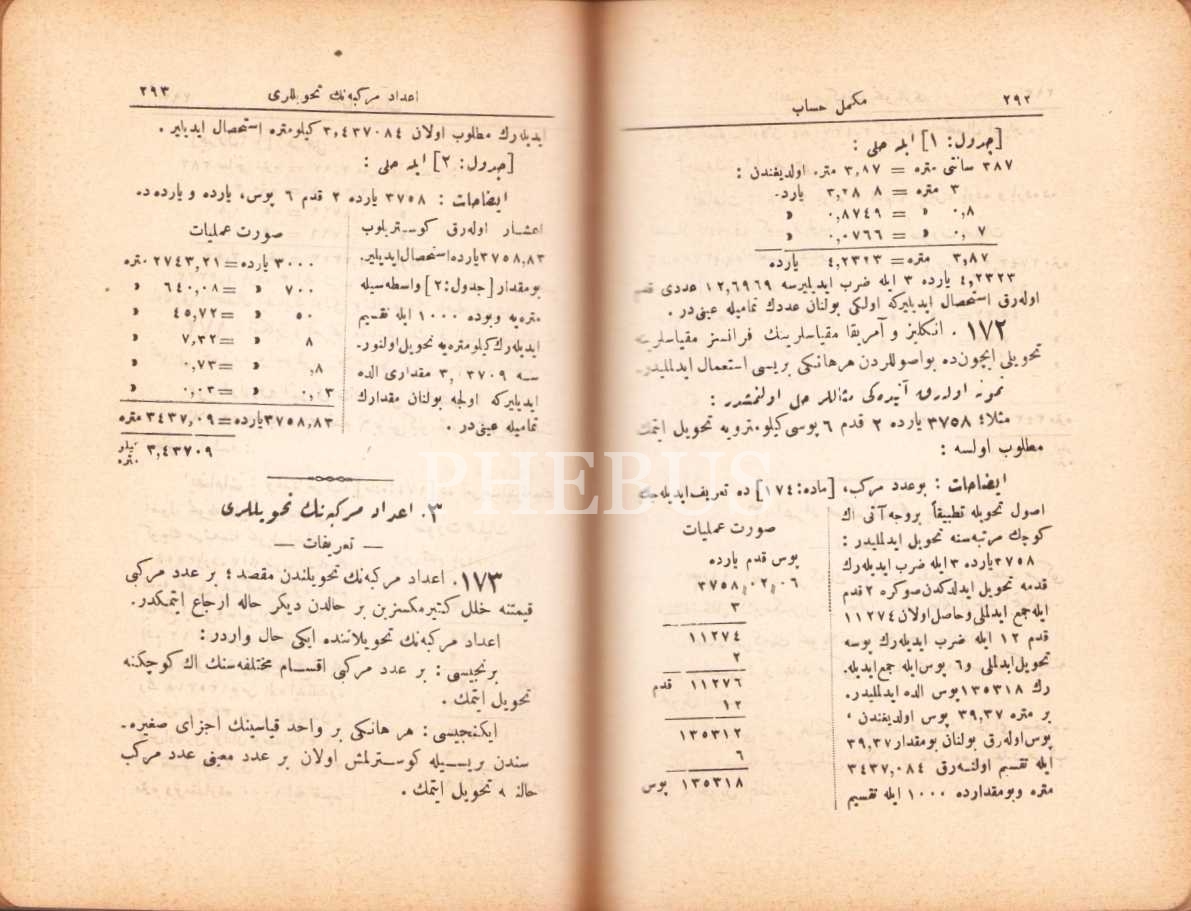 ٢٩٢
مكمل حساب
[جدول: ١] ايله حلى :
٣٨٧ سانتى متره = ٣,٨٧ متره اولديغندن :
٣ متره = ٣,٢٨٠٨ يارده
٠,٨ » = ٠,٨٧٤٩ »
٠,٠٧ » = ٠,٠٧٦٦ »
٣,٨٧ متره = ٤,٢٣٢٣ يارده
٤,٢٣٢٣ يارده ٣ ايله ضرب ايديليرسه ١٢,٦٩٦٩ عددى قدم
اوله‌رق استحصال ايديليركه اولكى بولنان عددك تماميله عينى‌در .
١٧٢ . انكليز و آمريقا مقياسلرينك فرانسز مقياسلرينه
تحويلى ايچون‌ده بو اصوللردن هر هانكى بريسى استعمال ايدلمليدر.
نمونه اوله‌رق آتيده‌كى مثاللر حل اولنمشدر :
مثلا؛ ٣٧٥٨ يارده ٢ قدم ٦ پوسى كيلومترويه تحويل ايتمك
مطلوب اولسه :
ايضاحات : بوعدد مركب، [ماده: ١٧٤] ده تعريف ايديله‌جك
اصول تحويله تطبيقاً بروجه آتى اك
كوچك مرتبه‌سنه تحويل ايدلمليدر :
٣٧٥٨ يارده ٣ ايله ضرب ايديله‌رك
قدمه تحويل ايدلدكدن صوكره ٢ قدم
ايله جمع ايدلملى وحاصل اولان ١١٢٧٤
قدم ١٢ ايله ضرب ايديله‌رك پوسه
تحويل ايدلملى و ٦ پوس ايله جمع ايديله-
رك ١٣٥٣١٨ پوس الده ايدلمليدر.
بر متره ٣٩,٣٧ پوس اولديغندن ،
پوس اوله‌رق بولنان بومقدار ٣٩,٣٧
ايله تقسيم اولنه‌رق ٣٤٣٧,٠٨٤
متره وبومقدارده ١٠٠٠ ايله تقسيم
صورت عمليات
پوس قدم يارده
٣٧٥٨,٠٢,٠٦
٣
١١٢٧٤
٢
١١٢٧٦ قدم
١٢
١٣٥٣١٢
٦
١٣٥٣١٨ پوس
اعداد مركبه‌نك تحويللرى
٢٩٣
ايديله‌رك مطلوب اولان ٣,٤٣٧٠٨٤ كيلومتره استحصال ايديلير .
[جدول: ٢] ايله حلى :
ايضاحات : ٣٧٥٨ يارده ٢ قدم ٦ پوس، يارده و يارده‌ده
اعشار اوله‌رق كوستريلوب
٣٧٥٨,٨٣ يارده استحصال ايديلير.
بومقدار [جدول: ٢] واسطه‌سيله
متره‌يه وبوده ١٠٠٠ ايله تقسيم
ايديله‌رك كيلومتره‌يه تحويل اولنور-
سه ٣,٤٣٧٠٩ مقدارى الده
ايديليركه اولجه بولنان مقدارك
تماميله عينى‌در .
صورت عمليات
٣٠٠٠ يارده = ٢٧٤٣,٢١ متره
٧٠٠ » = ٦٤٠,٠٨ »
٥٠ » = ٤٥,٧٢ »
٨ » = ٧,٣٢ »
,٨ » = ٠,٧٣ »
٠,٠٣ » = ٠,٠٣ »
٣٧٥٨,٨٣ يارده = ٣٤٣٧,٠٩ متره
٣,٤٣٧٠٩ كيلو متره
٣. اعداد مركبه‌نك تحويللرى
— تعريفات —
١٧٣. اعداد مركبه‌نك تحويلندن مقصد ؛ بر عدد مركبى
قيمتنه خلل كتيرمكسزين بر حالدن ديكر حاله ارجاع ايتمكدر.
اعداد مركبه‌نك تحويلاتنده ايكى حال واردر :
برنجيسى : بر عدد مركبى اقسام مختلفه‌سنك اك كوچكنه
تحويل ايتمك .
ايكنجيسى : هر هانكى بر واحد قياسينك اجزاى صغيره-
سندن بريسيله كوسترلمش اولان بر عدد معينى عدد مركب
حالنه تحويل ايتمك .
PHEBUS